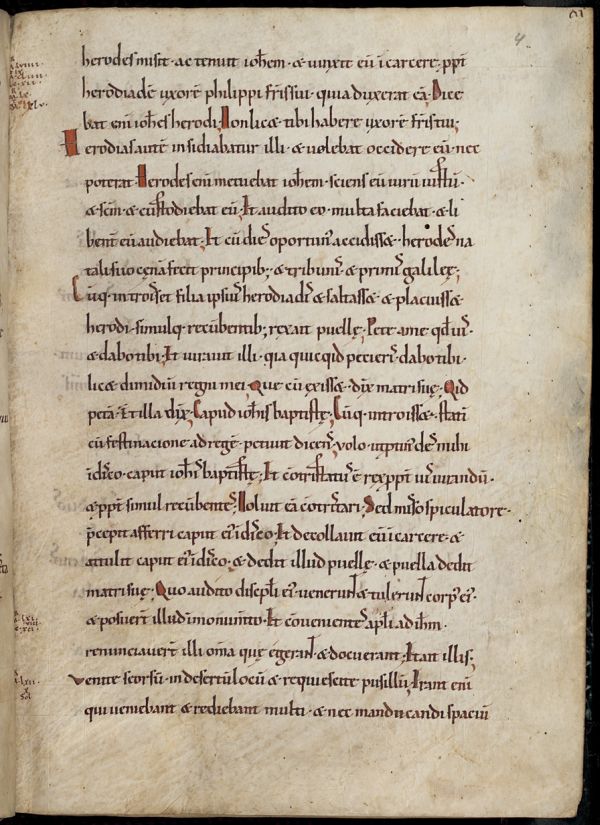 4
herodes misit · ac tenuit ioh̄em · & uinxit eū ī carcere; ppt̄
herodiadē uxorē philippi fr̄is sui · quia duxerat eā · Dice
bat eni̅ ioh̄es herodi; Non lic& tibi habere uxorē fr̄is tui;
Herodias autē insidiabatur illi · & uolebat occidere eū · nec
poterat · Herodes eni̅ metuebat ioh̄em · sciens eū uirū iustū ·
& sc̄m · & custodiebat eū; Et audito eo · multa faciebat · & li
bent̄ eū audiebat; Et cū dies oportunus accidiss& · herodes na
talis suo cęnā fecit principib; & tribunis & primis galileę;
Cūq· introiss& filia ipsius herodiadis & saltass& · & placuiss&
herodi · simulq· recūbentib; rex ait puellę · Pete a me qd uis ·
& dabo tibi; Et iurauit illi · quia quicqid petieris dabo tibi ·
lic& dimidiū regni mei · Que cū exiss& · dix̄ matri suę · Qid
petā · Et illa dix̄ · Caput ioh̄is baptistę; Cūq· introiss& · statī
cū festinacione ad regē · petiuit dicens · uolo ut ptinus des mihi
ī disco · caput ioh̄is baptistę; Et cōtristatus ē rex · ppt̄ ius iurandū ·
& ppt̄ simul recūbentes; Noluit eā cōtristari; Sed misso spiculatore ·
p̄cepit afferri caput eius ī disco; Et decollauit eū ī carcere · &
attulit caput eius ī disco; & dedit illud puellę · & puella dedit
matri suę; Quo audito discipuli eius uenerunt & tulerunt corpus eius ·
& posuert̄ illud ī monumto · Et cōuenientes apl̄i ad ih̄m ·
renunciauert̄ illi om̄a quę egerant & docuerant; Et ait illis;
Venite seorsū · in desertū locū & requiescite pusillū; Erant eni̅
qui ueniebant & rediebant multi · & nec manducandi spaciū